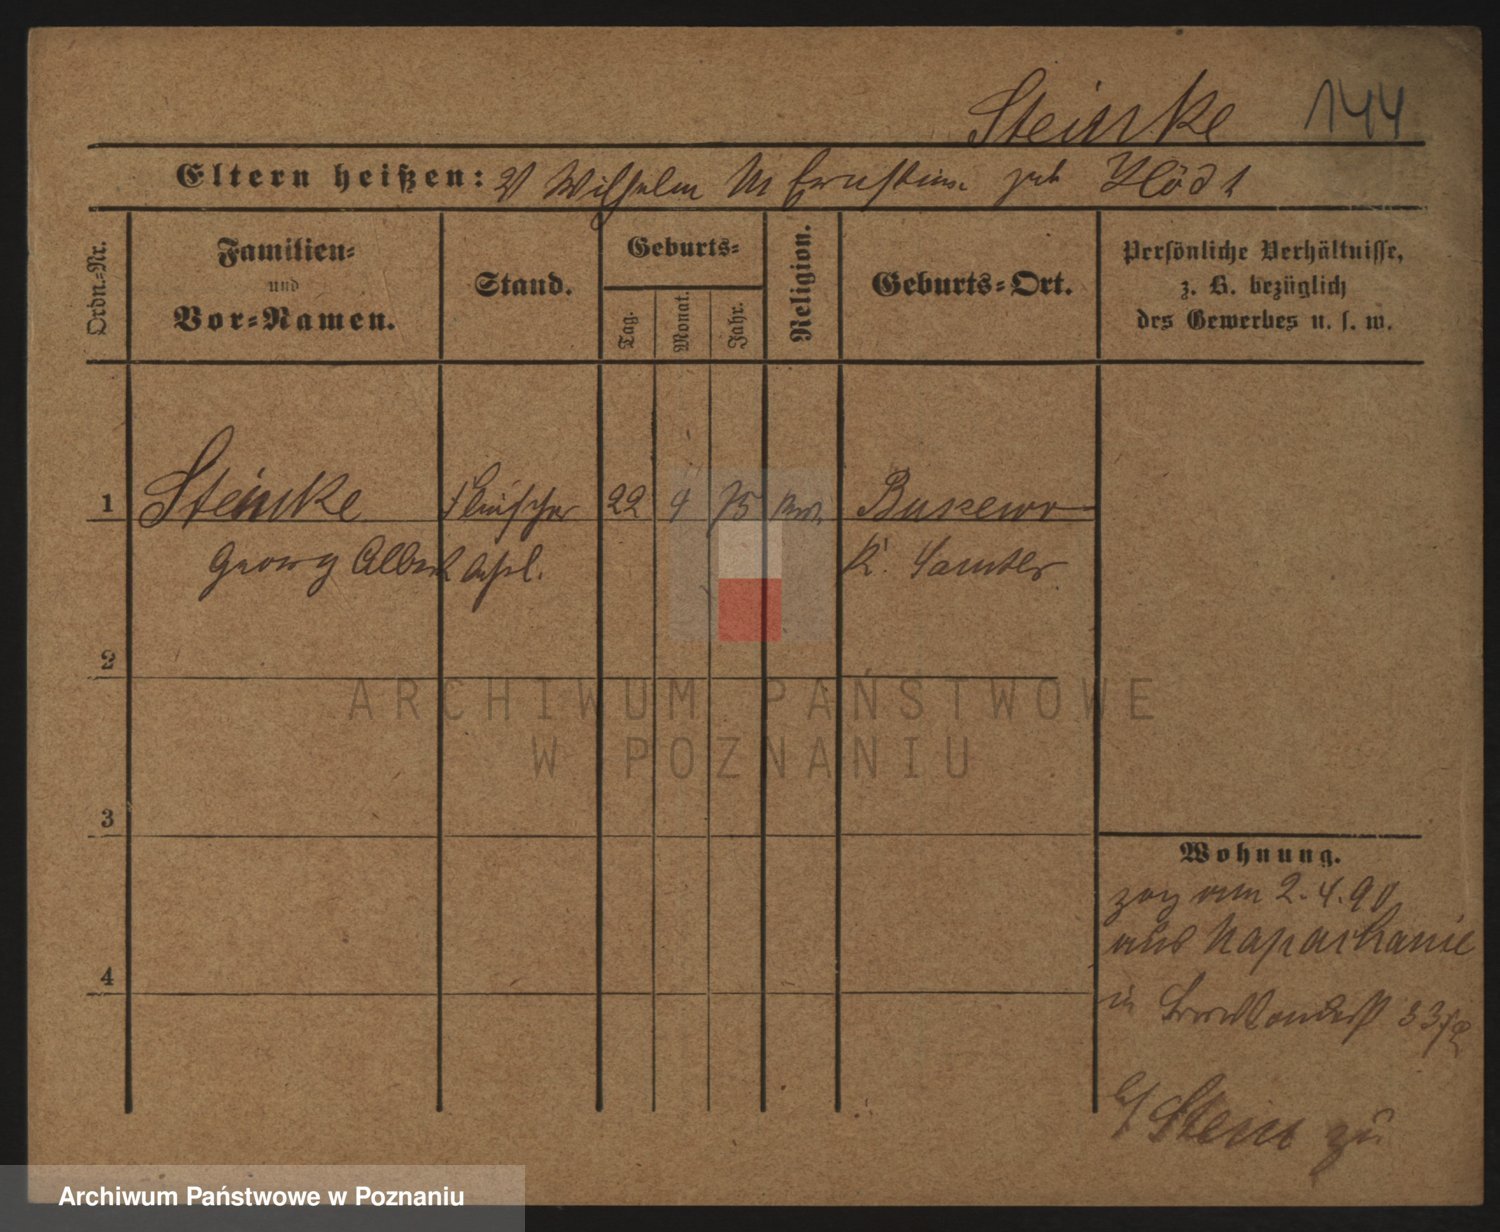 Steinke 144
Eltern heißen: V Wilhelm M Ernstine geb
Ordn.-Nr.
Familien-
und
Vor-Namen.
Stand.
Geburts-
Tag.
Monat.
Jahr.
Religion.
Geburts-Ort.
Persönliche Verhältnisse,
z. B. bezüglich
des Gewerbes u. s. w.
1 Steinke Fleischer 22 4 75 Buszewo
Georg Albert K. Samter
2
3
4
Wohnung.
zog am 2.4.90
aus Naparchanie
in
b/ Stein zu
ARCHIWUM PAŃSTWOWE
W POZNANIU
Archiwum Państwowe w Poznaniu